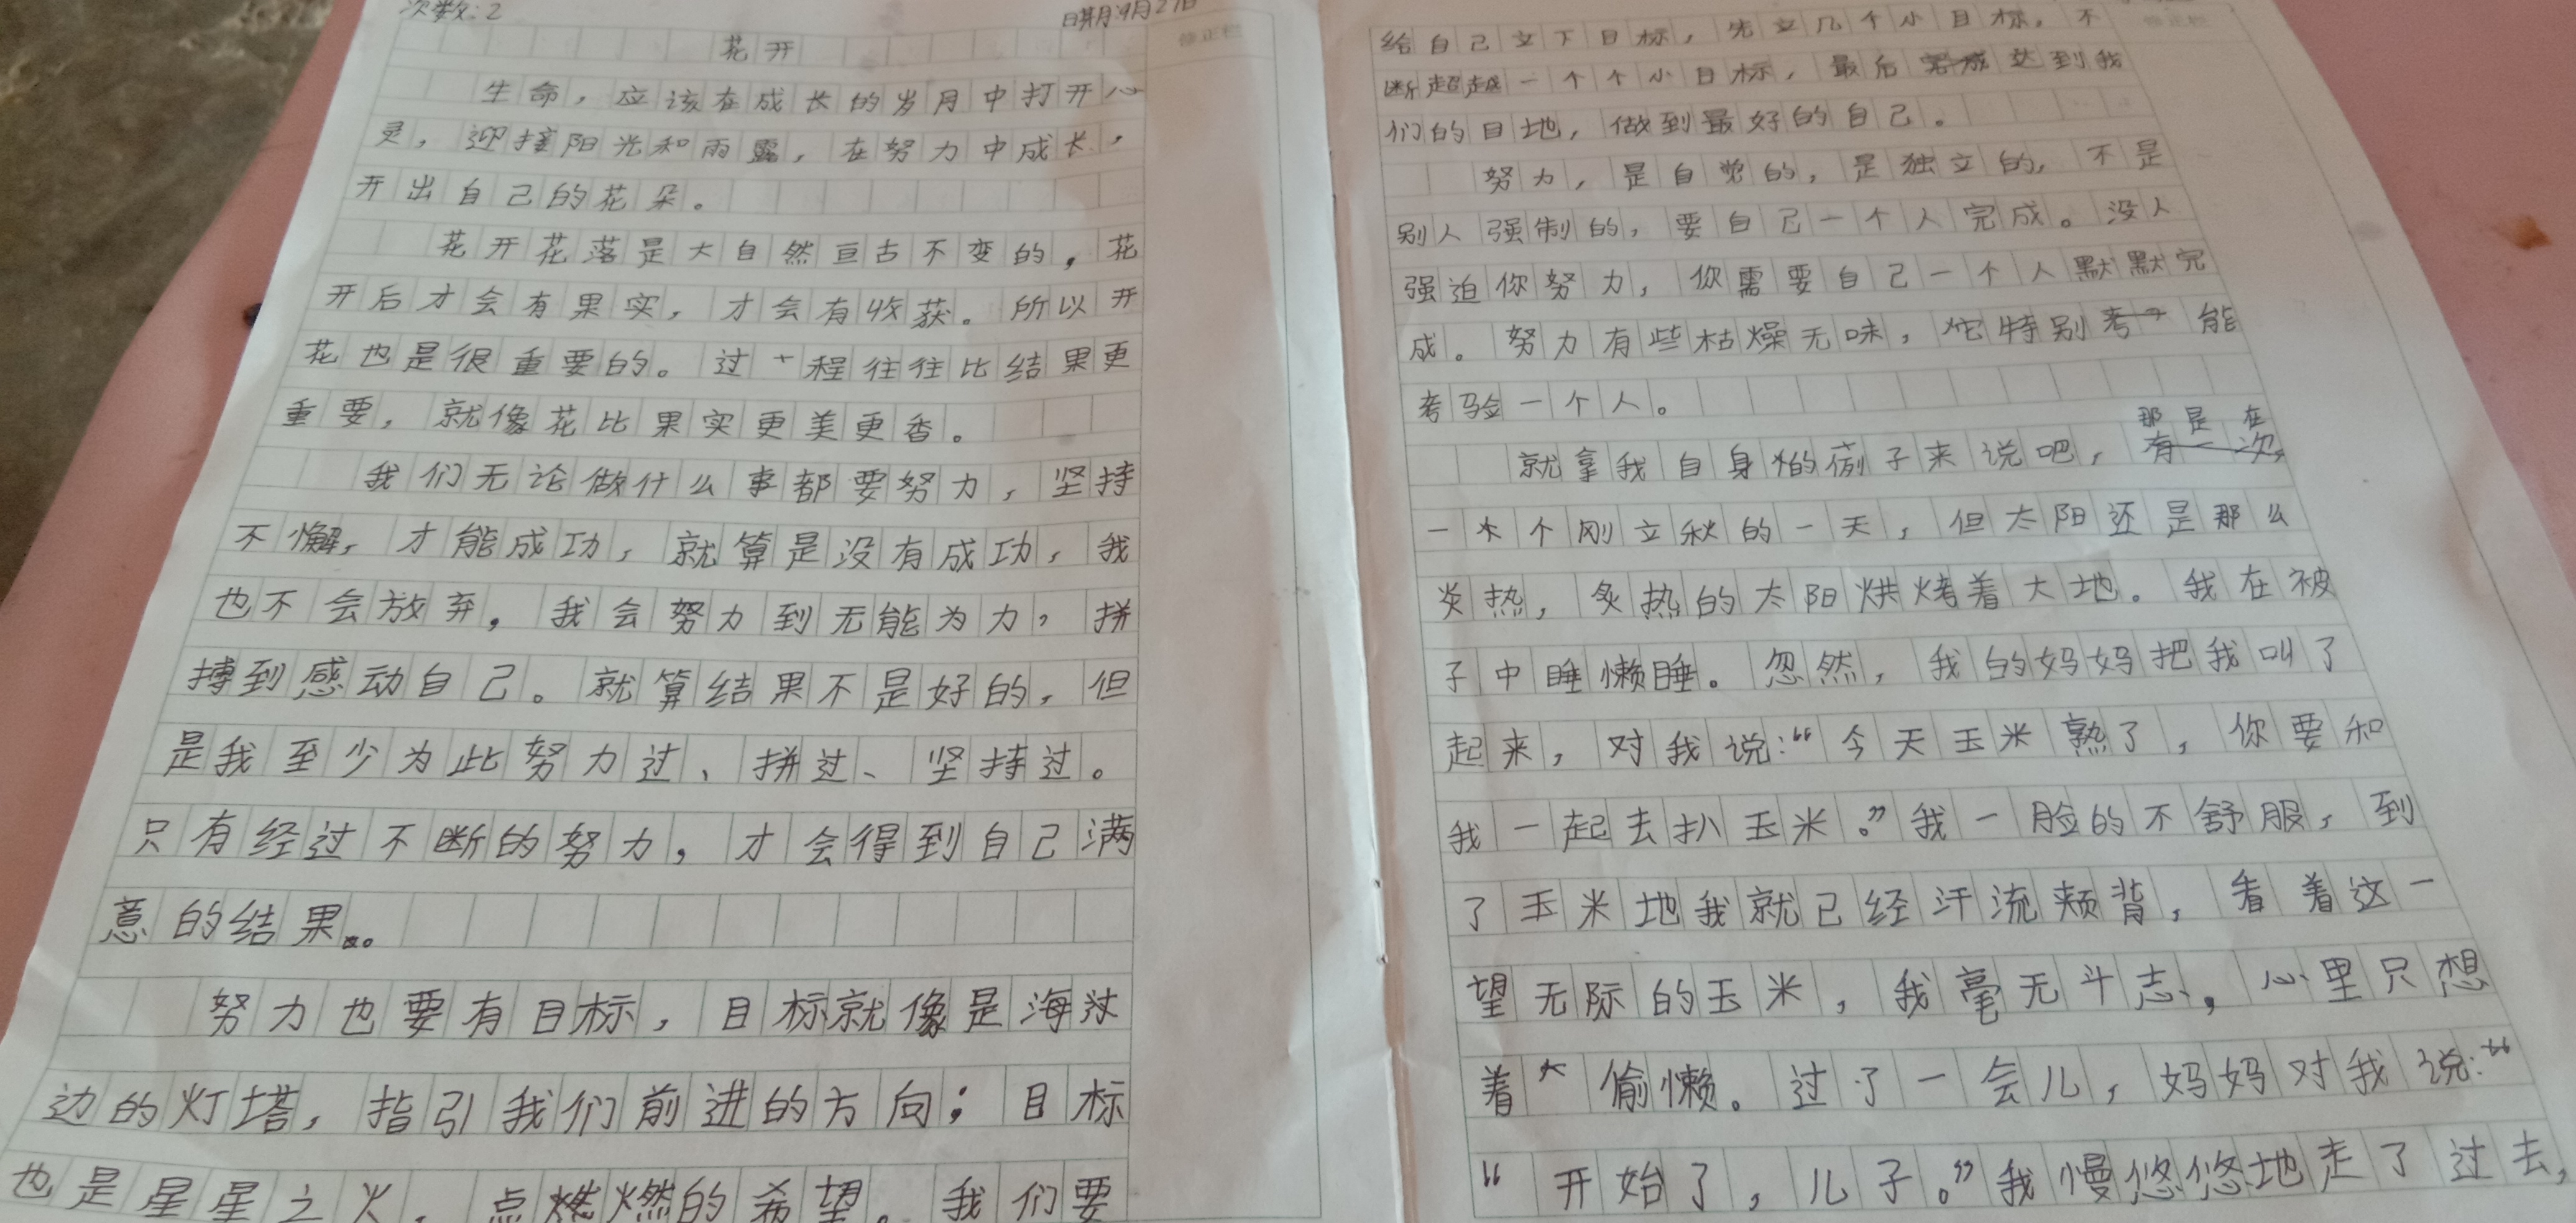 次数:2
日期:9月27日
花开
生命，应该在成长的岁月中打开心
灵，迎接阳光和雨露，在努力中成长，
开出自己的花朵。
花开花落是大自然亘古不变的，花
开后才会有果实，才会有收获。所以开
花也是很重要的。过程往往比结果更
重要，就像花比果实更美更香。
我们无论做什么事都要努力，坚持
不懈，才能成功，就算是没有成功，我
也不会放弃。我会努力到无能为力，拼
搏到感动自己。就算结果不是好的，但
是我至少为此努力过、拼过、坚持过。
只有经过不断的努力，才会得到自己满
意的结果。
努力也要有目标，目标就像是海
边的灯塔，指引我们前进的方向；目标
也是星星之火，点燃的希望。我们要
修正栏
给自己立下目标，先立几个小目标，不
断超越一个个小目标，最后达到我
们的目地，做到最好的自己。
努力，是自觉的，是独立的，不是
别人强制的，要自己一个人完成。没人
强迫你努力，你需要自己一个人默默完
成。努力有些枯燥无味，它特别能
考验一个人。
就拿我自身的例子来说吧，那是在
一个刚立秋的一天，但太阳还是那么
炎热，炙热的太阳烘烤着大地。我在被
子中睡懒睡。忽然，我的妈妈把我叫了
起来，对我说：“今天玉米熟了，你要和
我一起去扒玉米。”我一脸的不舒服，到
了玉米地我就已经汗流颊背，看着这一
望无际的玉米，我毫无斗志，心里只想
着偷懒。过了一会儿，妈妈对我说：“
“开始了，儿子。”我慢悠悠地走了过去，